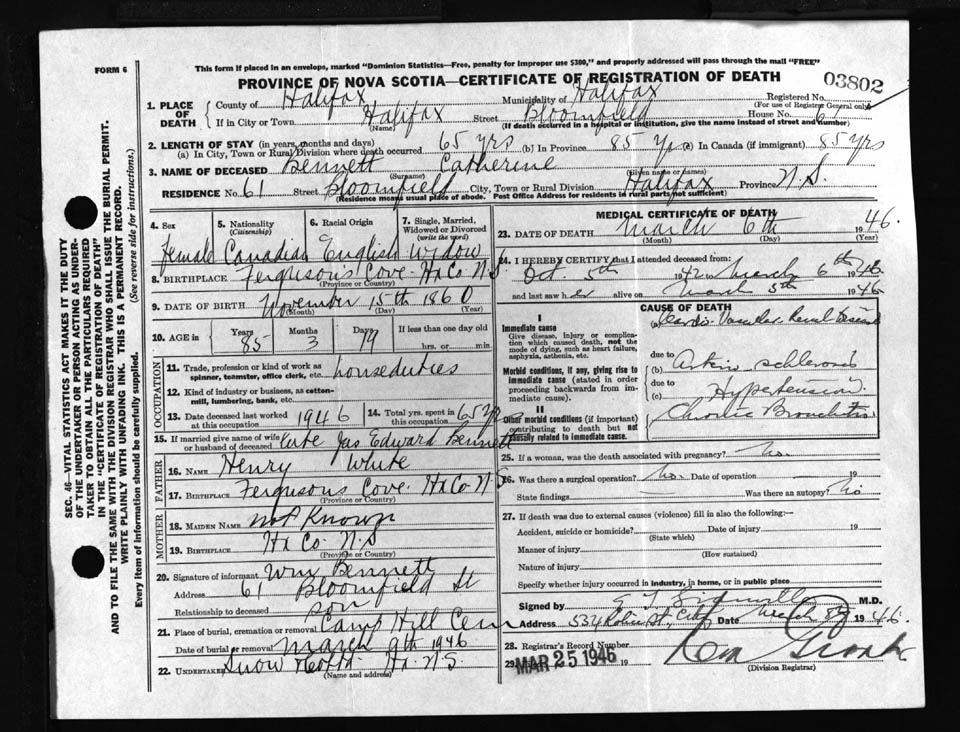 FORM 6
This form if placed in an envelope, marked "Dominion Statistics—Free, penalty for improper use $300," and properly addressed will pass through the mail "FREE"
PROVINCE OF NOVA SCOTIA—CERTIFICATE OF REGISTRATION OF DEATH
03802
1. PLACE OF DEATH
County of Halifax Municipality of Halifax Registered No.
(For use of Registrar General only)
If in City or Town Halifax Street Bloomfield House No. 61
(Name) (If death occurred in a hospital or institution, give the name instead of street and number)
2. LENGTH OF STAY (in years, months and days)
(a) In City, Town or Rural Division where death occurred 65 yrs (b) In Province 85 yrs (c) In Canada (if immigrant) 85 yrs
3. NAME OF DECEASED Bennett Catherine
(Surname) (Given name or names)
RESIDENCE No. 61 Street Bloomfield City, Town or Rural Division Halifax Province N.S.
(Residence means usual place of abode. Post Office Address for residents in rural parts not sufficient)
4. Sex 5. Nationality (Citizenship) 6. Racial Origin 7. Single, Married, Widowed or Divorced (write the word)
Female Canadian English Widow
8. BIRTHPLACE Ferguson's Cove Hx Co N.S.
(Province or Country)
9. DATE OF BIRTH November 15th 1860
(Month) (Day) (Year)
10. AGE in Years Months Days If less than one day old
85 3 19 hrs. or min.
11. Trade, profession or kind of work as spinner, teamster, office clerk, etc. houseduties
12. Kind of industry or business, as cotton-mill, lumbering, bank, etc.
13. Date deceased last worked at this occupation 1946 14. Total yrs. spent in this occupation 65 yrs
15. If married give name of wife or husband of deceased Jas Edward Bennett
FATHER
16. NAME Henry White
17. BIRTHPLACE Fergusons Cove Hx Co N.S
(Province or Country)
MOTHER
18. MAIDEN NAME not Known
19. BIRTHPLACE Hx Co. N.S
(Province or Country)
20. Signature of informant Wm Bennett
Address 61 Bloomfield St
Relationship to deceased son
21. Place of burial, cremation or removal Camp Hill Cem
Date of burial or removal March 9th 1946
22. UNDERTAKER Snow Hx. N.S.
(Name and address)
MEDICAL CERTIFICATE OF DEATH
23. DATE OF DEATH March 6th 1946.
(Month) (Day) (Year)
24. I HEREBY CERTIFY that I attended deceased from:
Oct. 5th 1942 to March 6th 1946
and last saw her alive on March 5th 1946
CAUSE OF DEATH
I
Immediate cause
Give disease, injury or complication which caused death, not the mode of dying, such as heart failure, asphyxia, asthenia, etc.
(a) Cardio Vascular Renal Disease
Morbid conditions, if any, giving rise to immediate cause (stated in order proceeding backwards from immediate cause).
due to
(b) Arterio schlerosis
due to
(c) Hypertension.
II
Other morbid conditions (if important) contributing to death but not causally related to immediate cause.
Chronic Bronchitis
25. If a woman, was the death associated with pregnancy? No.
26. Was there a surgical operation? No. Date of operation 19
State findings Was there an autopsy? No
27. If death was due to external causes (violence) fill in also the following:—
Accident, suicide or homicide? Date of injury 19
(State which)
Manner of injury
(How sustained)
Nature of injury
Specify whether injury occurred in industry, in home, or in public place
Signed by M.D.
Address 534 Robie St., City Date 1946.
28. Registrar's Record Number
29. MAR 25 1946 19
(Division Registrar)
SEC. 46—VITAL STATISTICS ACT MAKES IT THE DUTY
OF THE UNDERTAKER OR PERSON ACTING AS UNDERTAKER TO OBTAIN ALL THE PARTICULARS REQUIRED
IN THE "CERTIFICATE OF REGISTRATION OF DEATH"
AND TO FILE THE SAME WITH THE DIVISION REGISTRAR WHO SHALL ISSUE THE BURIAL PERMIT.
WRITE PLAINLY WITH UNFADING INK. THIS IS A PERMANENT RECORD.
Every item of information should be carefully supplied. (See reverse side for instructions.)